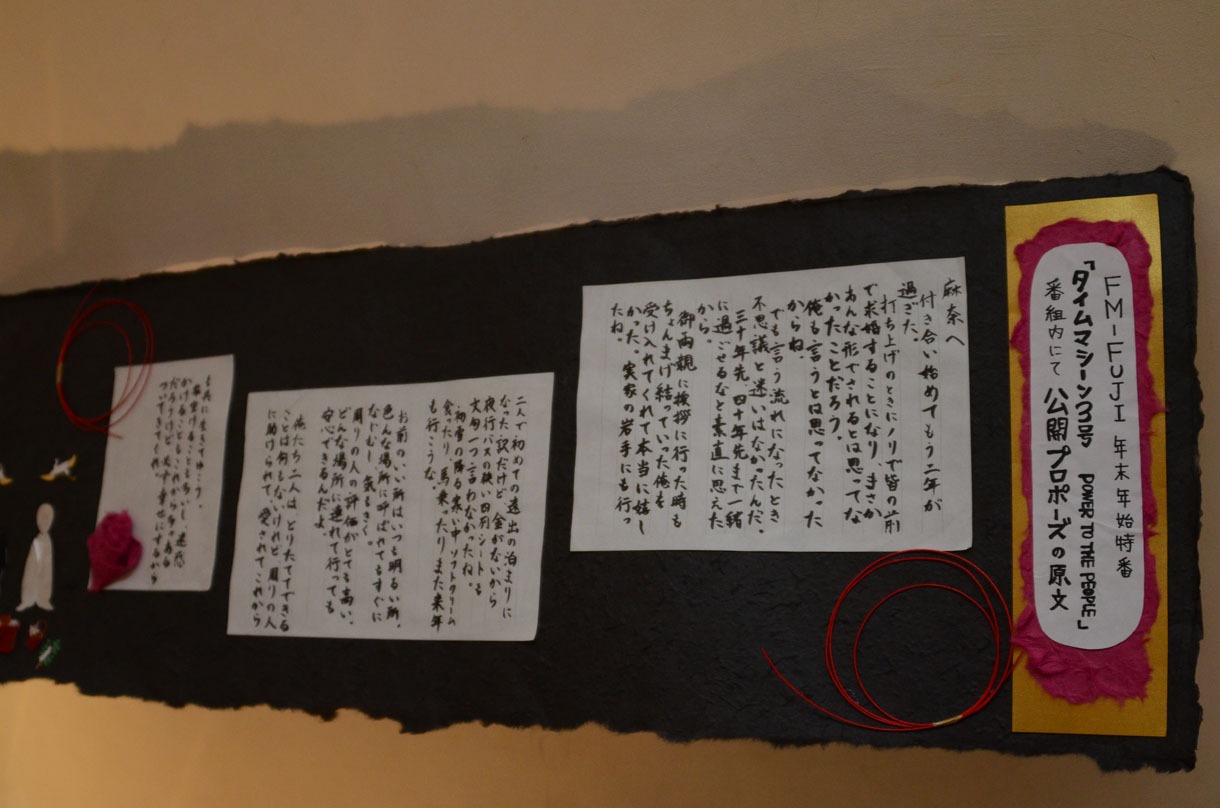 FM-FUJI 年末年始特番
「タイムマシーン33号 POWER TO THE PEOPLE」
番組内にて 公開プロポーズの原文
麻奈へ
付き合い始めてもう二年が
過ぎた。
打ち上げのときにノリで皆の前
で求婚することになり、まさか
あんな形でされるとは思ってな
かったことだろう。
俺も言うとは思ってなかった
からね。
でも言う流れになったとき
不思議と迷いはなかったんだ。
三十年先、四十年先まで一緒
に過ごせるなと素直に思えた
から。
御両親に挨拶に行った時も
ちょんまげ結っていった俺を
受け入れてくれて本当に嬉し
かった。実家の岩手にも行っ
たね。
二人で初めての遠出の泊まりに
なった訳だけど、金がないから
夜行バスの狭い四列シートも
文句一つ言わなかったね。
初雪の降る寒い中ソフトクリーム
食ったり、馬乗ったり、また来年
も行こうな。
お前のいい所はいつも明るい所、
色んな場所に呼ばれてもすぐに
なじむし、気もきく。
周りの人の評価がとても高い。
どんな場所に連れて行っても
安心できるんだよ。
俺たち二人は、とりたててできる
ことは何もないけれど、周りの人
に助けられて、愛されてこれから
も共に生きてゆこう。
かけることもこれから多々ある
だろうけど、必ず幸せにするから
ついてきてくれ。